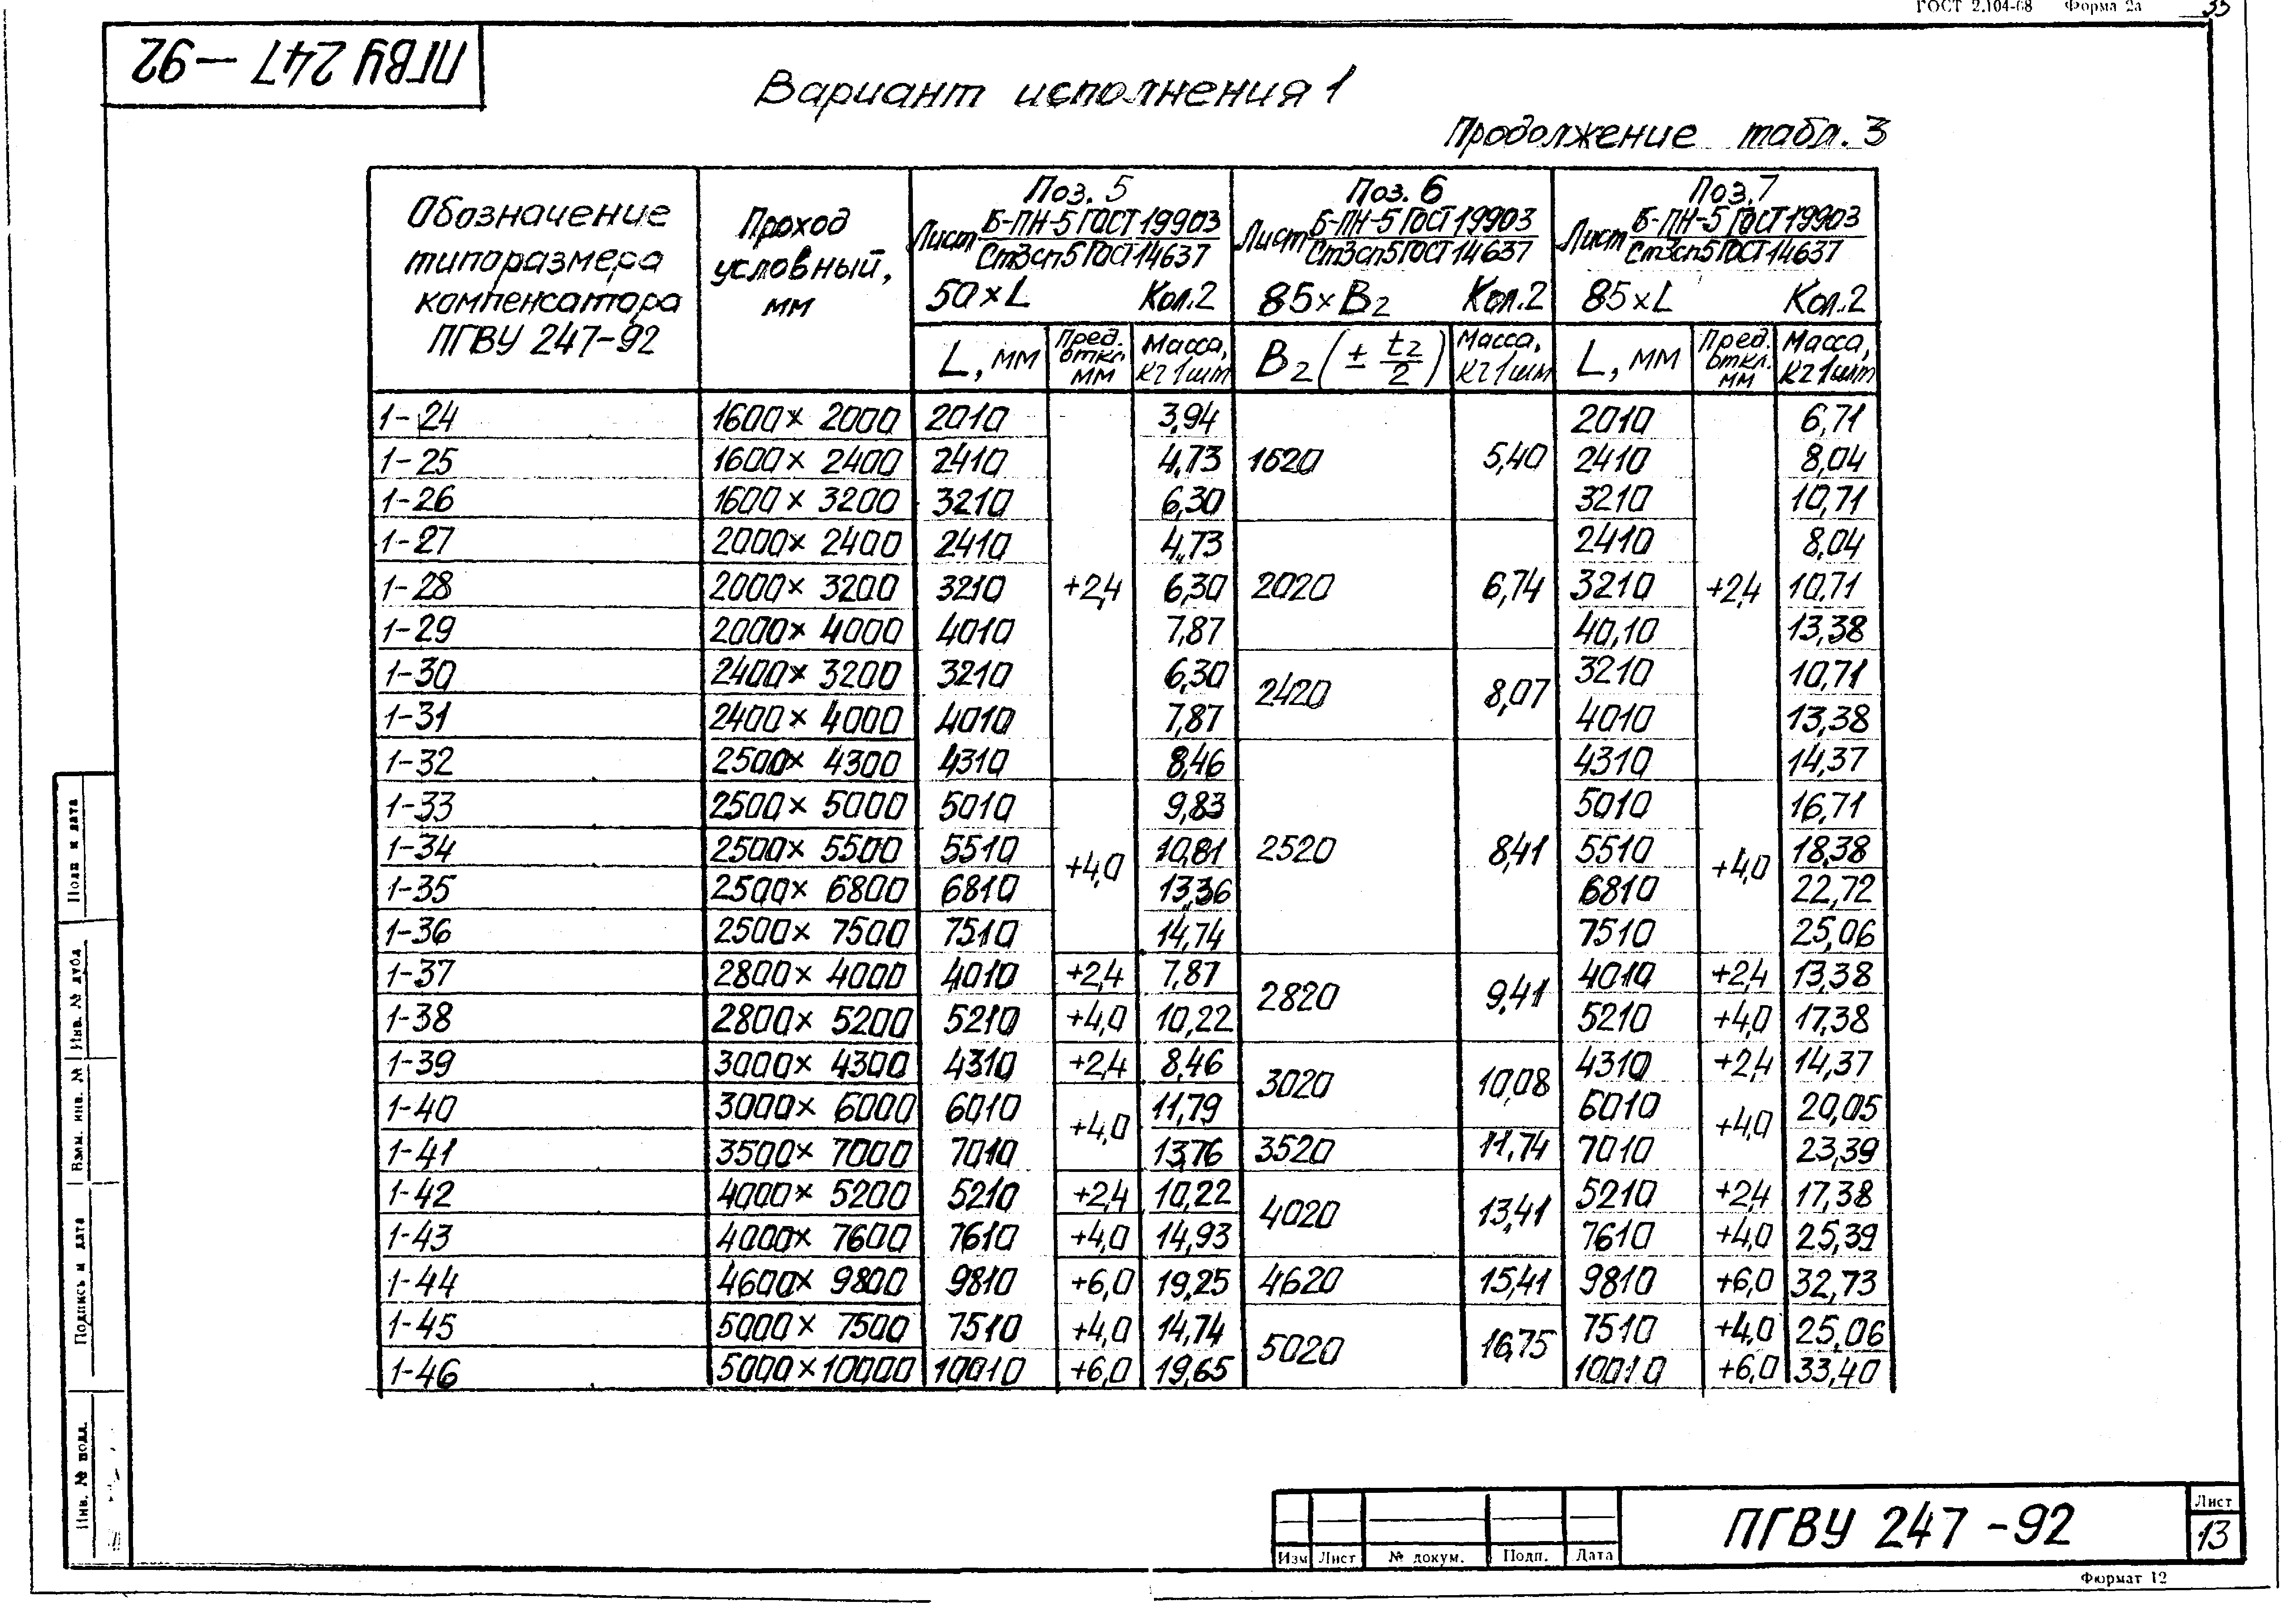 ГОСТ 2.104-68 Форма 2а 33
ПГВУ 247 -92
Вариант исполнения 1
Продолжение табл. 3
Обозначение типоразмера компенсатора ПГВУ 247-92
Проход условный, мм
Поз. 5
Лист Б-ПН-5 ГОСТ 19903 / Ст3сп5 ГОСТ 14637
50×L Кол.2
Поз. 6
Лист Б-ПН-5 ГОСТ 19903 / Ст3сп5 ГОСТ 14637
85×B2 Кол.2
Поз. 7
Лист Б-ПН-5 ГОСТ 19903 / Ст3сп5 ГОСТ 14637
85×L Кол.2
L, мм Пред. откл. мм Масса, кг 1шт B2 (± t2/2) Масса, кг 1шт L, мм Пред. откл. мм Масса, кг 1шт
1-24 1600×2000 2010 3,94 2010 6,71
1-25 1600×2400 2410 4,73 1620 5,40 2410 8,04
1-26 1600×3200 3210 6,30 3210 10,71
1-27 2000×2400 2410 4,73 2410 8,04
1-28 2000×3200 3210 +2,4 6,30 2020 6,74 3210 +2,4 10,71
1-29 2000×4000 4010 7,87 40,10 13,38
1-30 2400×3200 3210 6,30 2420 8,07 3210 10,71
1-31 2400×4000 4010 7,87 4010 13,38
1-32 2500×4300 4310 8,46 4310 14,37
1-33 2500×5000 5010 9,83 5010 16,71
1-34 2500×5500 5510 +4,0 10,81 2520 8,41 5510 +4,0 18,38
1-35 2500×6800 6810 13,36 6810 22,72
1-36 2500×7500 7510 14,74 7510 25,06
1-37 2800×4000 4010 +2,4 7,87 2820 9,41 4010 +2,4 13,38
1-38 2800×5200 5210 +4,0 10,22 5210 +4,0 17,38
1-39 3000×4300 4310 +2,4 8,46 3020 10,08 4310 +2,4 14,37
1-40 3000×6000 6010 +4,0 11,79 6010 +4,0 20,05
1-41 3500×7000 7010 13,76 3520 11,74 7010 23,39
1-42 4000×5200 5210 +2,4 10,22 4020 13,41 5210 +2,4 17,38
1-43 4000×7600 7610 +4,0 14,93 7610 +4,0 25,39
1-44 4600×9800 9810 +6,0 19,25 4620 15,41 9810 +6,0 32,73
1-45 5000×7500 7510 +4,0 14,74 5020 16,75 7510 +4,0 25,06
1-46 5000×10000 10010 +6,0 19,65 10010 +6,0 33,40
Подп и дата
Инв. № дубл
Взам. инв. №
Подпись и дата
Инв. № подл.
Изм Лист № докум. Подп. Дата
ПГВУ 247 -92
Лист
13
Формат 12